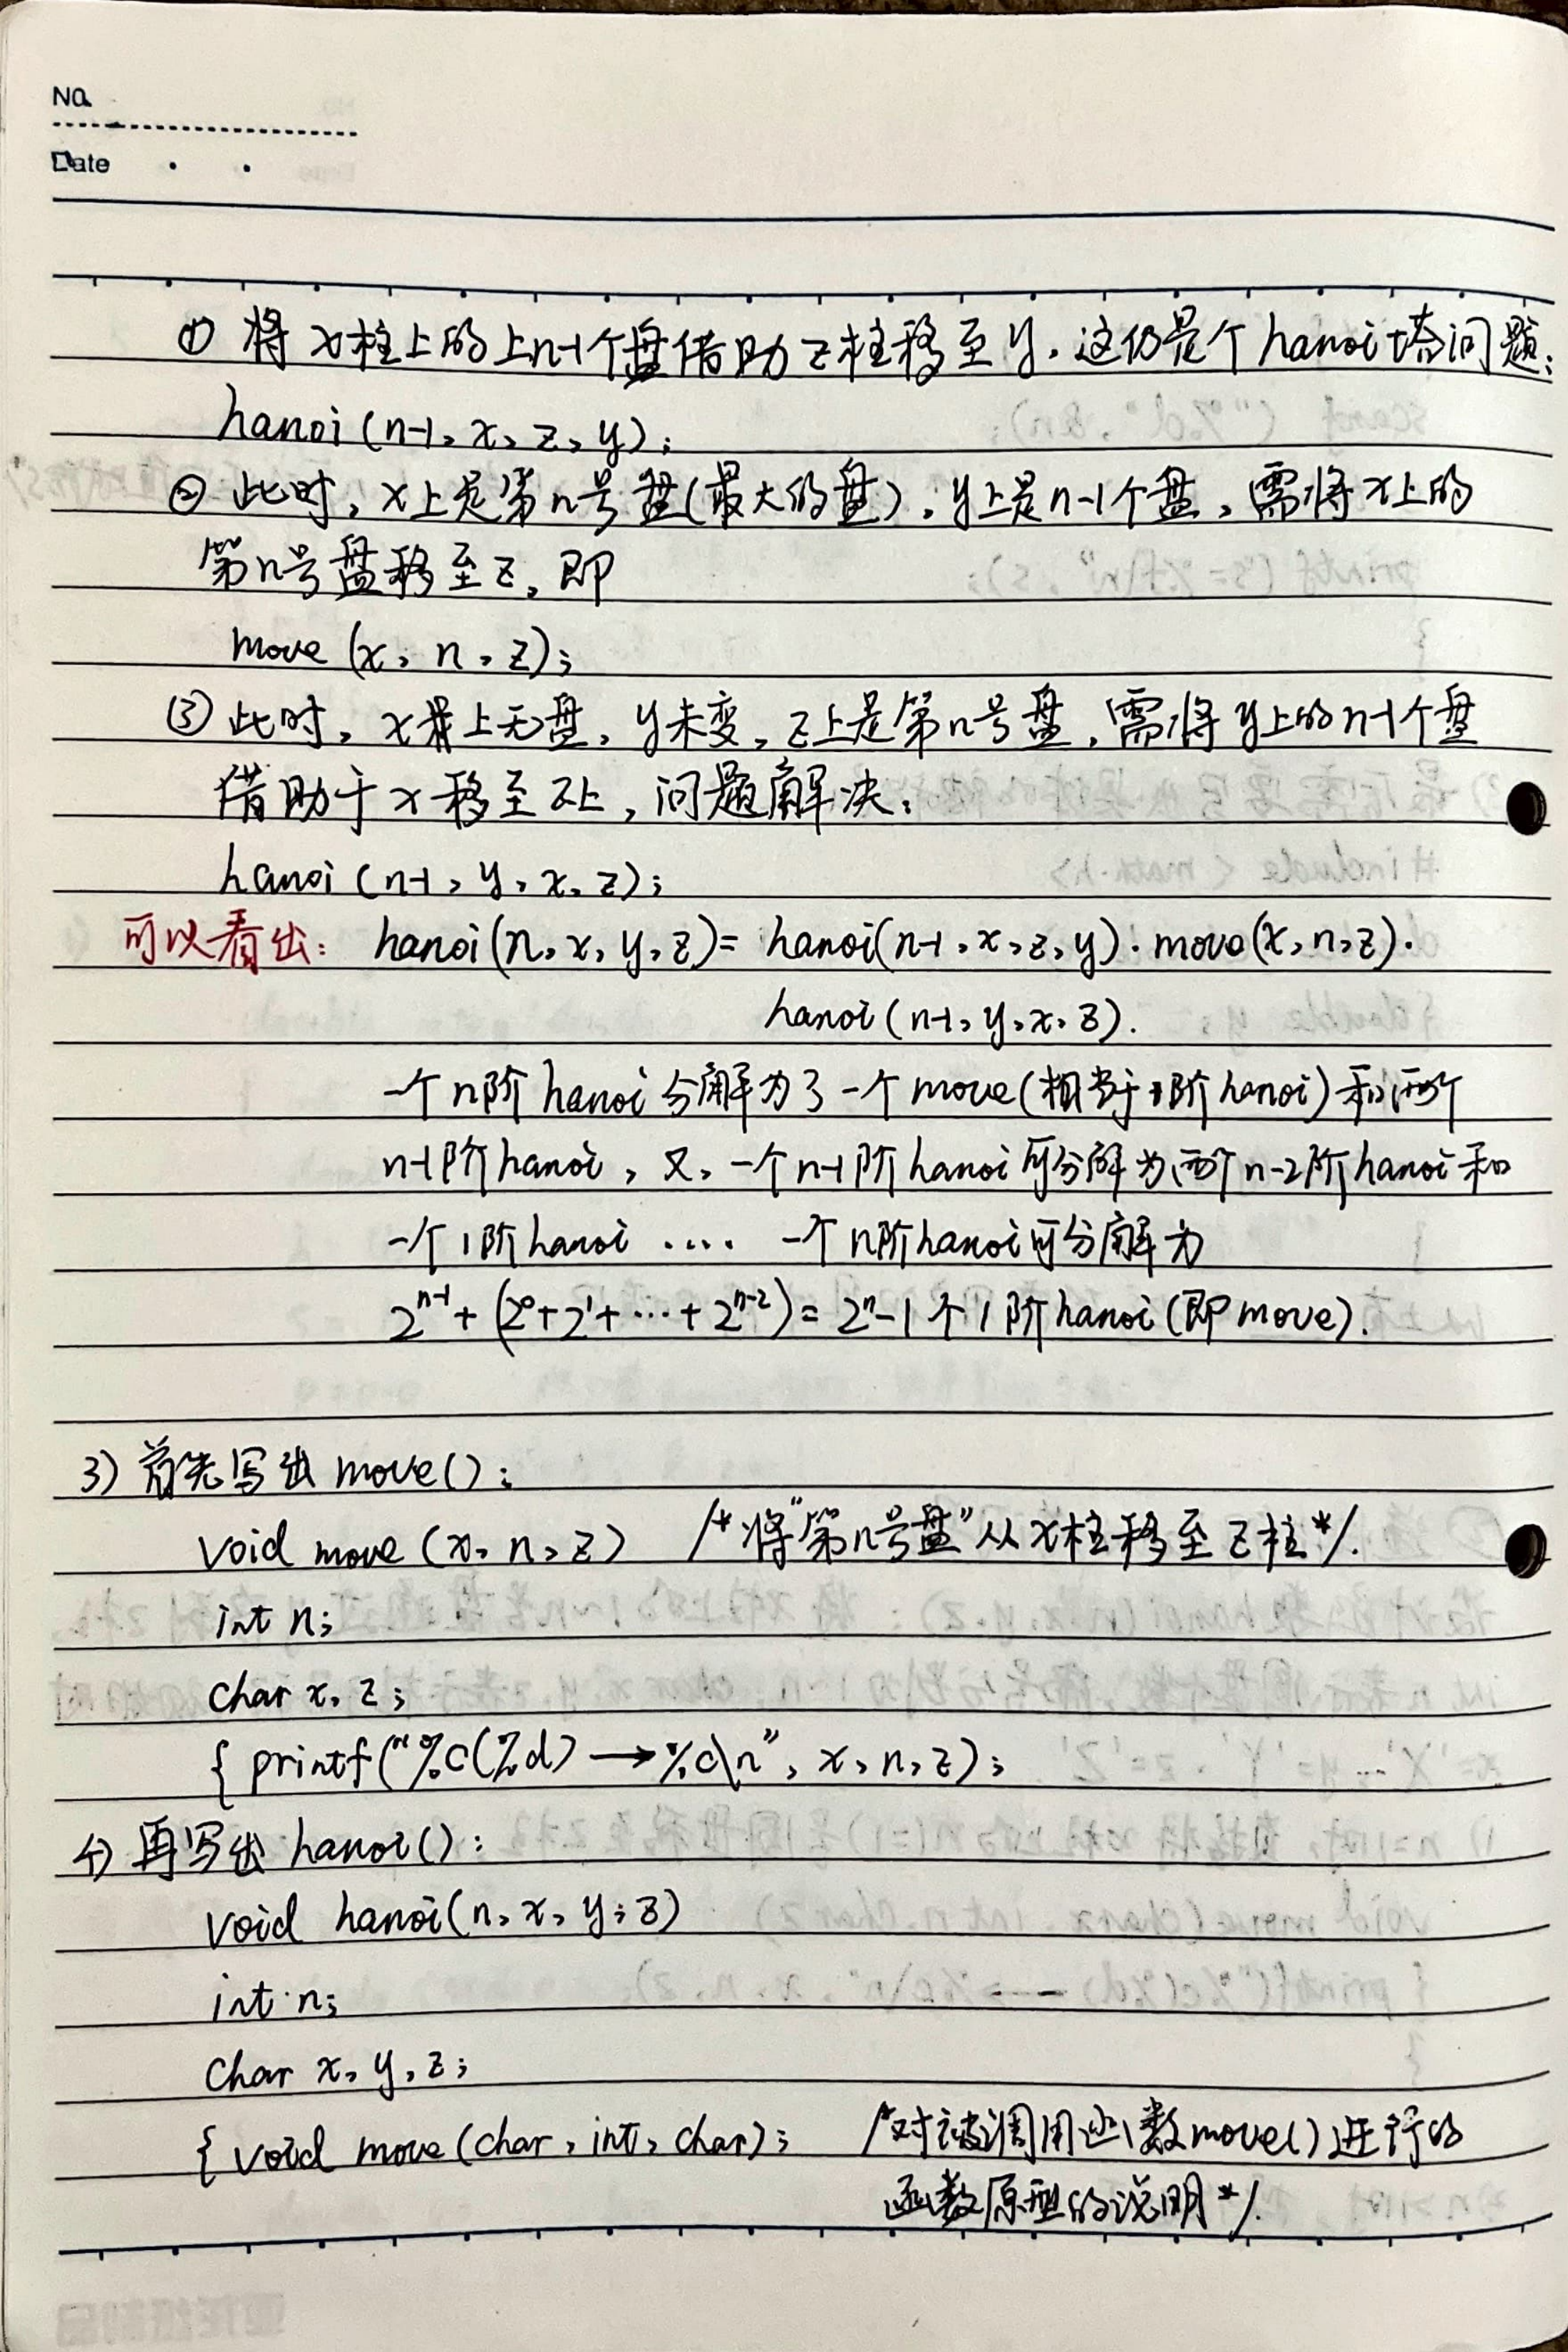 No.
Date
① 将x柱上的上n-1个盘借助z柱移至y.这仍是个hanoi塔问题;
hanoi(n-1,x,z,y);
② 此时,x上是第n号盘(最大的盘),y上是n-1个盘,需将x上的
第n号盘移至z,即
move(x,n,z);
③ 此时,x上无盘,y未变,z上是第n号盘,需将y上的n-1个盘
借助于x移至z上,问题解决:
hanoi(n-1,y,x,z);
可以看出: hanoi(n,x,y,z)= hanoi(n-1,x,z,y)·move(x,n,z)·
hanoi(n-1,y,x,z).
一个n阶hanoi分解为了一个move(相当于1阶hanoi)和两个
n-1阶hanoi,又,一个n-1阶hanoi可分解为两个n-2阶hanoi和
一个1阶hanoi .... 一个n阶hanoi可分解为
2ⁿ⁻¹+(2⁰+2¹+…+2ⁿ⁻²)=2ⁿ-1个1阶hanoi(即move).
3) 首先写出move():
void move(x,n,z) /*将"第n号盘"从x柱移至z柱*/.
int n;
char x,z;
{ printf("%c(%d)→%c\n",x,n,z);
4) 再写出hanoi():
void hanoi(n,x,y,z)
int n;
char x,y,z;
{ void move(char,int,char); /*对被调用函数move()进行的
函数原型的说明*/.